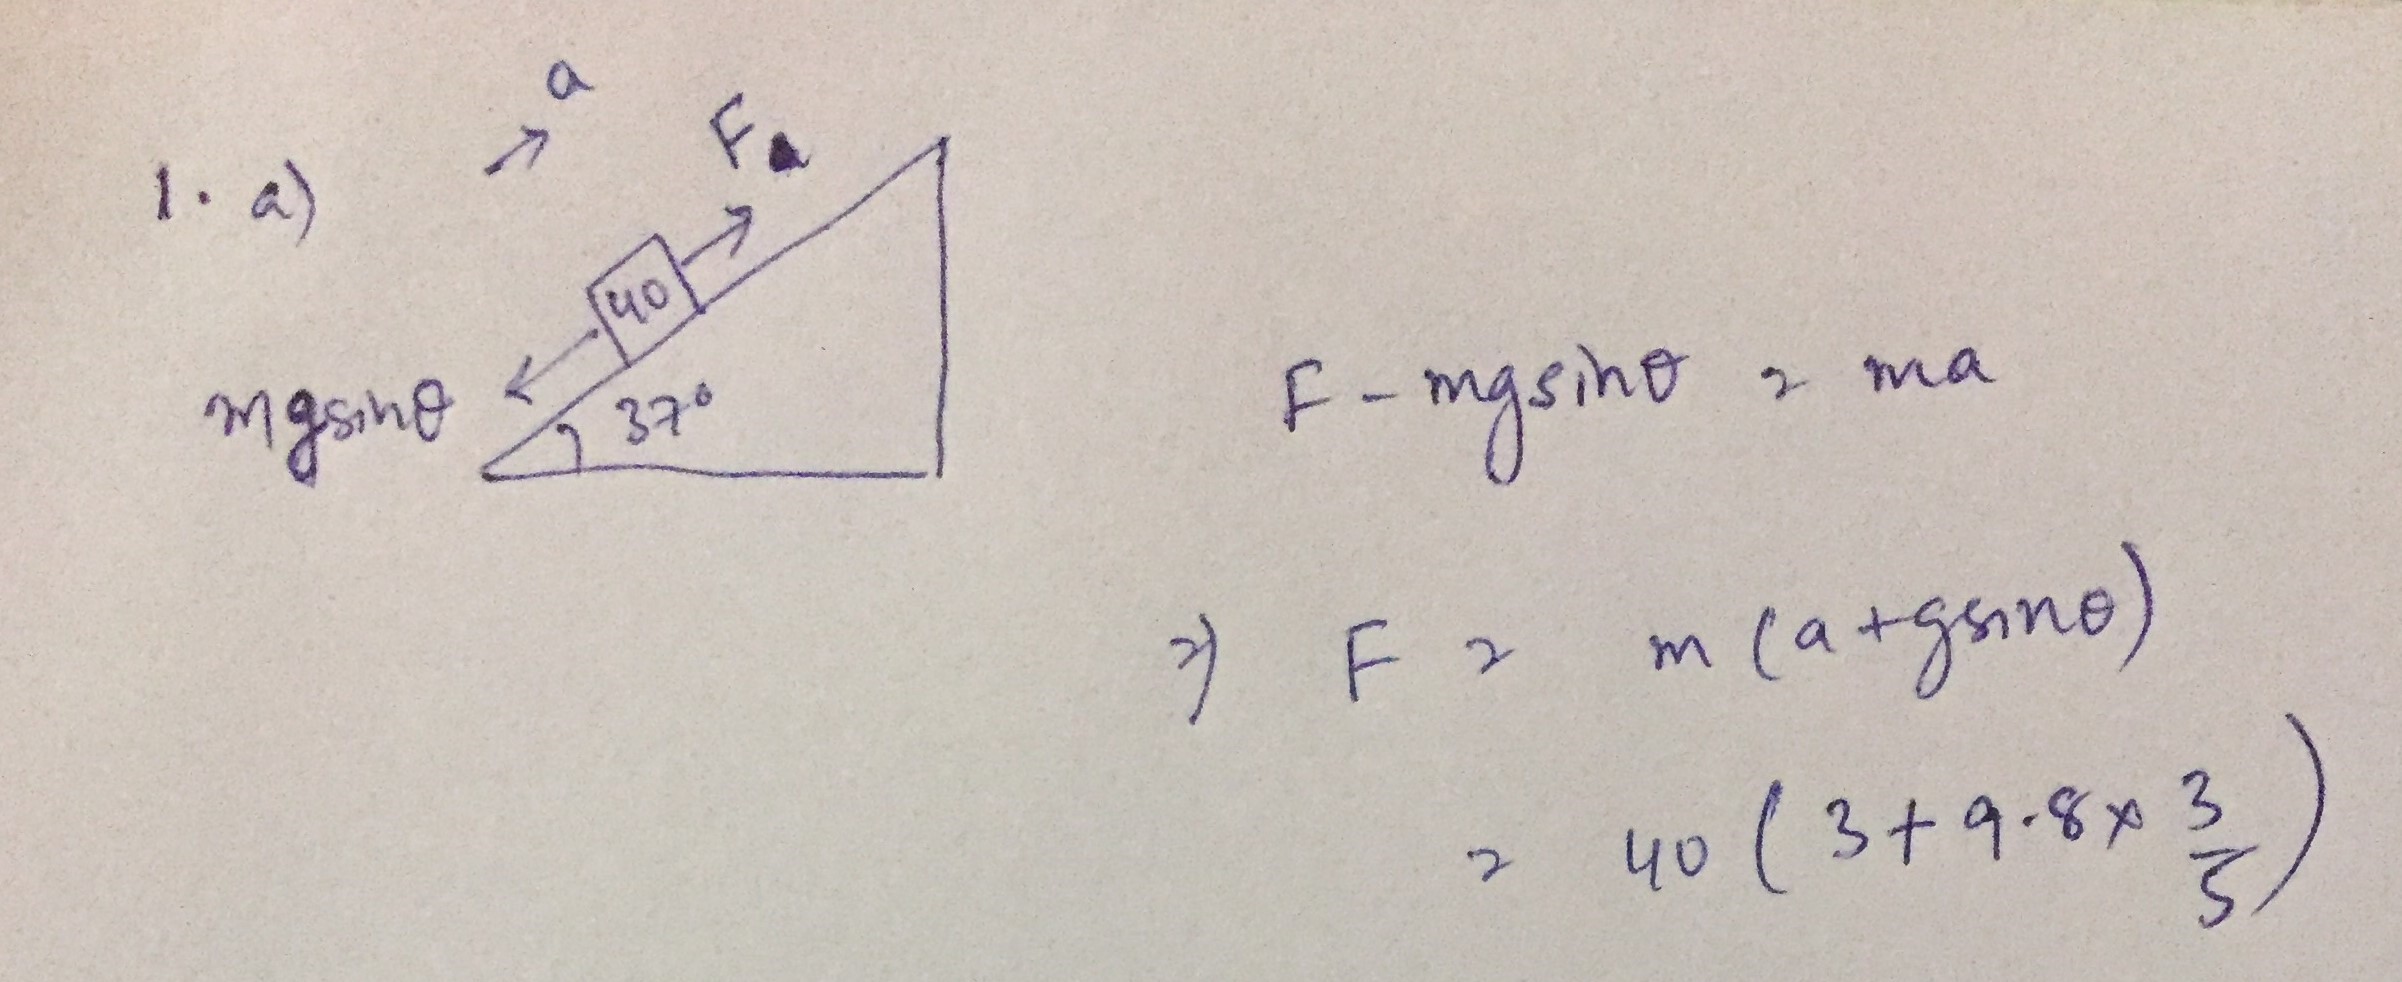 1. a)
a
F
40
mgsinθ
37°
F - mgsinθ = ma
⇒ F = m (a + gsinθ)
= 40 ( 3 + 9.8 × 3/5 )